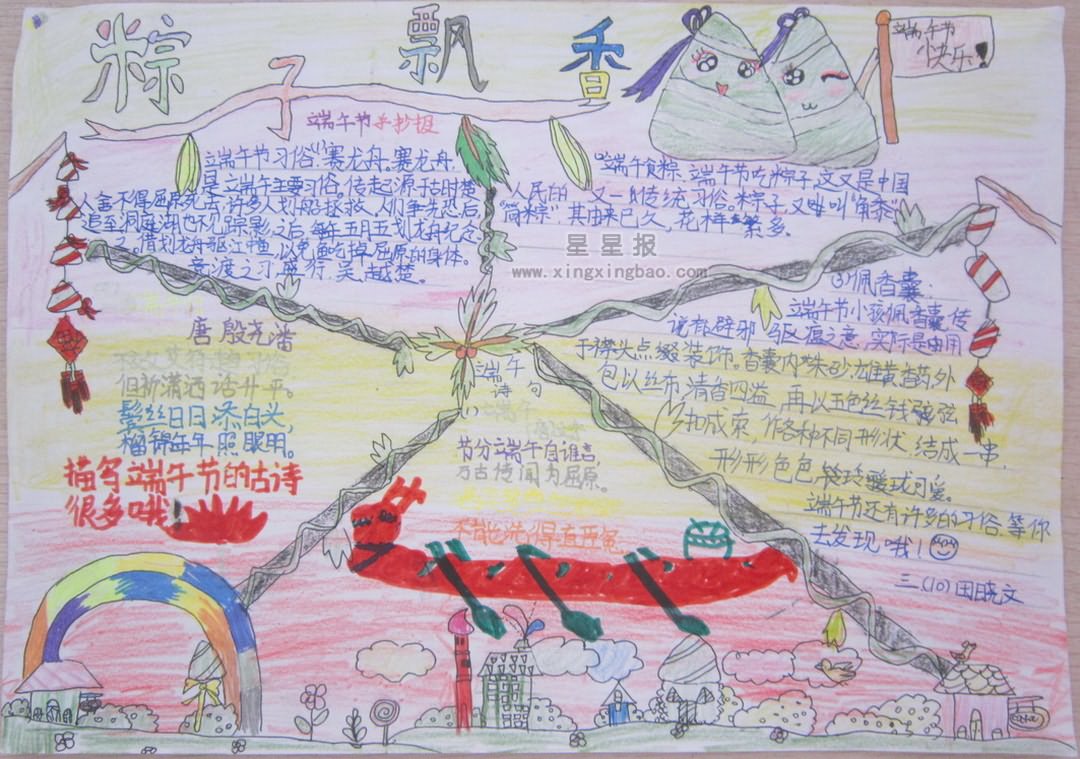 粽子飘香
端午节
快乐!
端午节手抄报
端午节习俗:(1)赛龙舟。赛龙舟,
是端午主要习俗,传起源于古时楚
人舍不得屈原死去,许多人划船拯救。人们争先恐后,
追至洞庭湖也不见踪影,之后每年五月五划龙舟纪念
借划龙舟驱江中鱼,以免鱼吃掉屈原的身体。
竞渡之习,盛行吴、越楚。
端午食粽。端午节吃粽子,这又是中国
人民的 又一传统习俗。粽子,又叫"角黍"
"筒粽"其由来已久,花样繁多。
星星报
www.xingxingbao.com
(3)佩香囊:
端午节小孩佩香囊,传
说有辟邪 驱瘟之意,实际是用
于襟头点缀装饰。香囊内
包以丝布,清香四溢,再以五色丝线
扣成索,作各种不同形状,结成一串,
形形色色,玲珑可爱。
端午节还有许多的习俗,等你
去发现哦!
三、(10) 田晓文
唐 殷尧藩
但祈
鬓丝日日添白头,
榴锦年年照眼明。
描写端午节的古诗
很多哦!
端午
诗句
(1)端午
节分端午自谁言,
万古传闻为屈原。